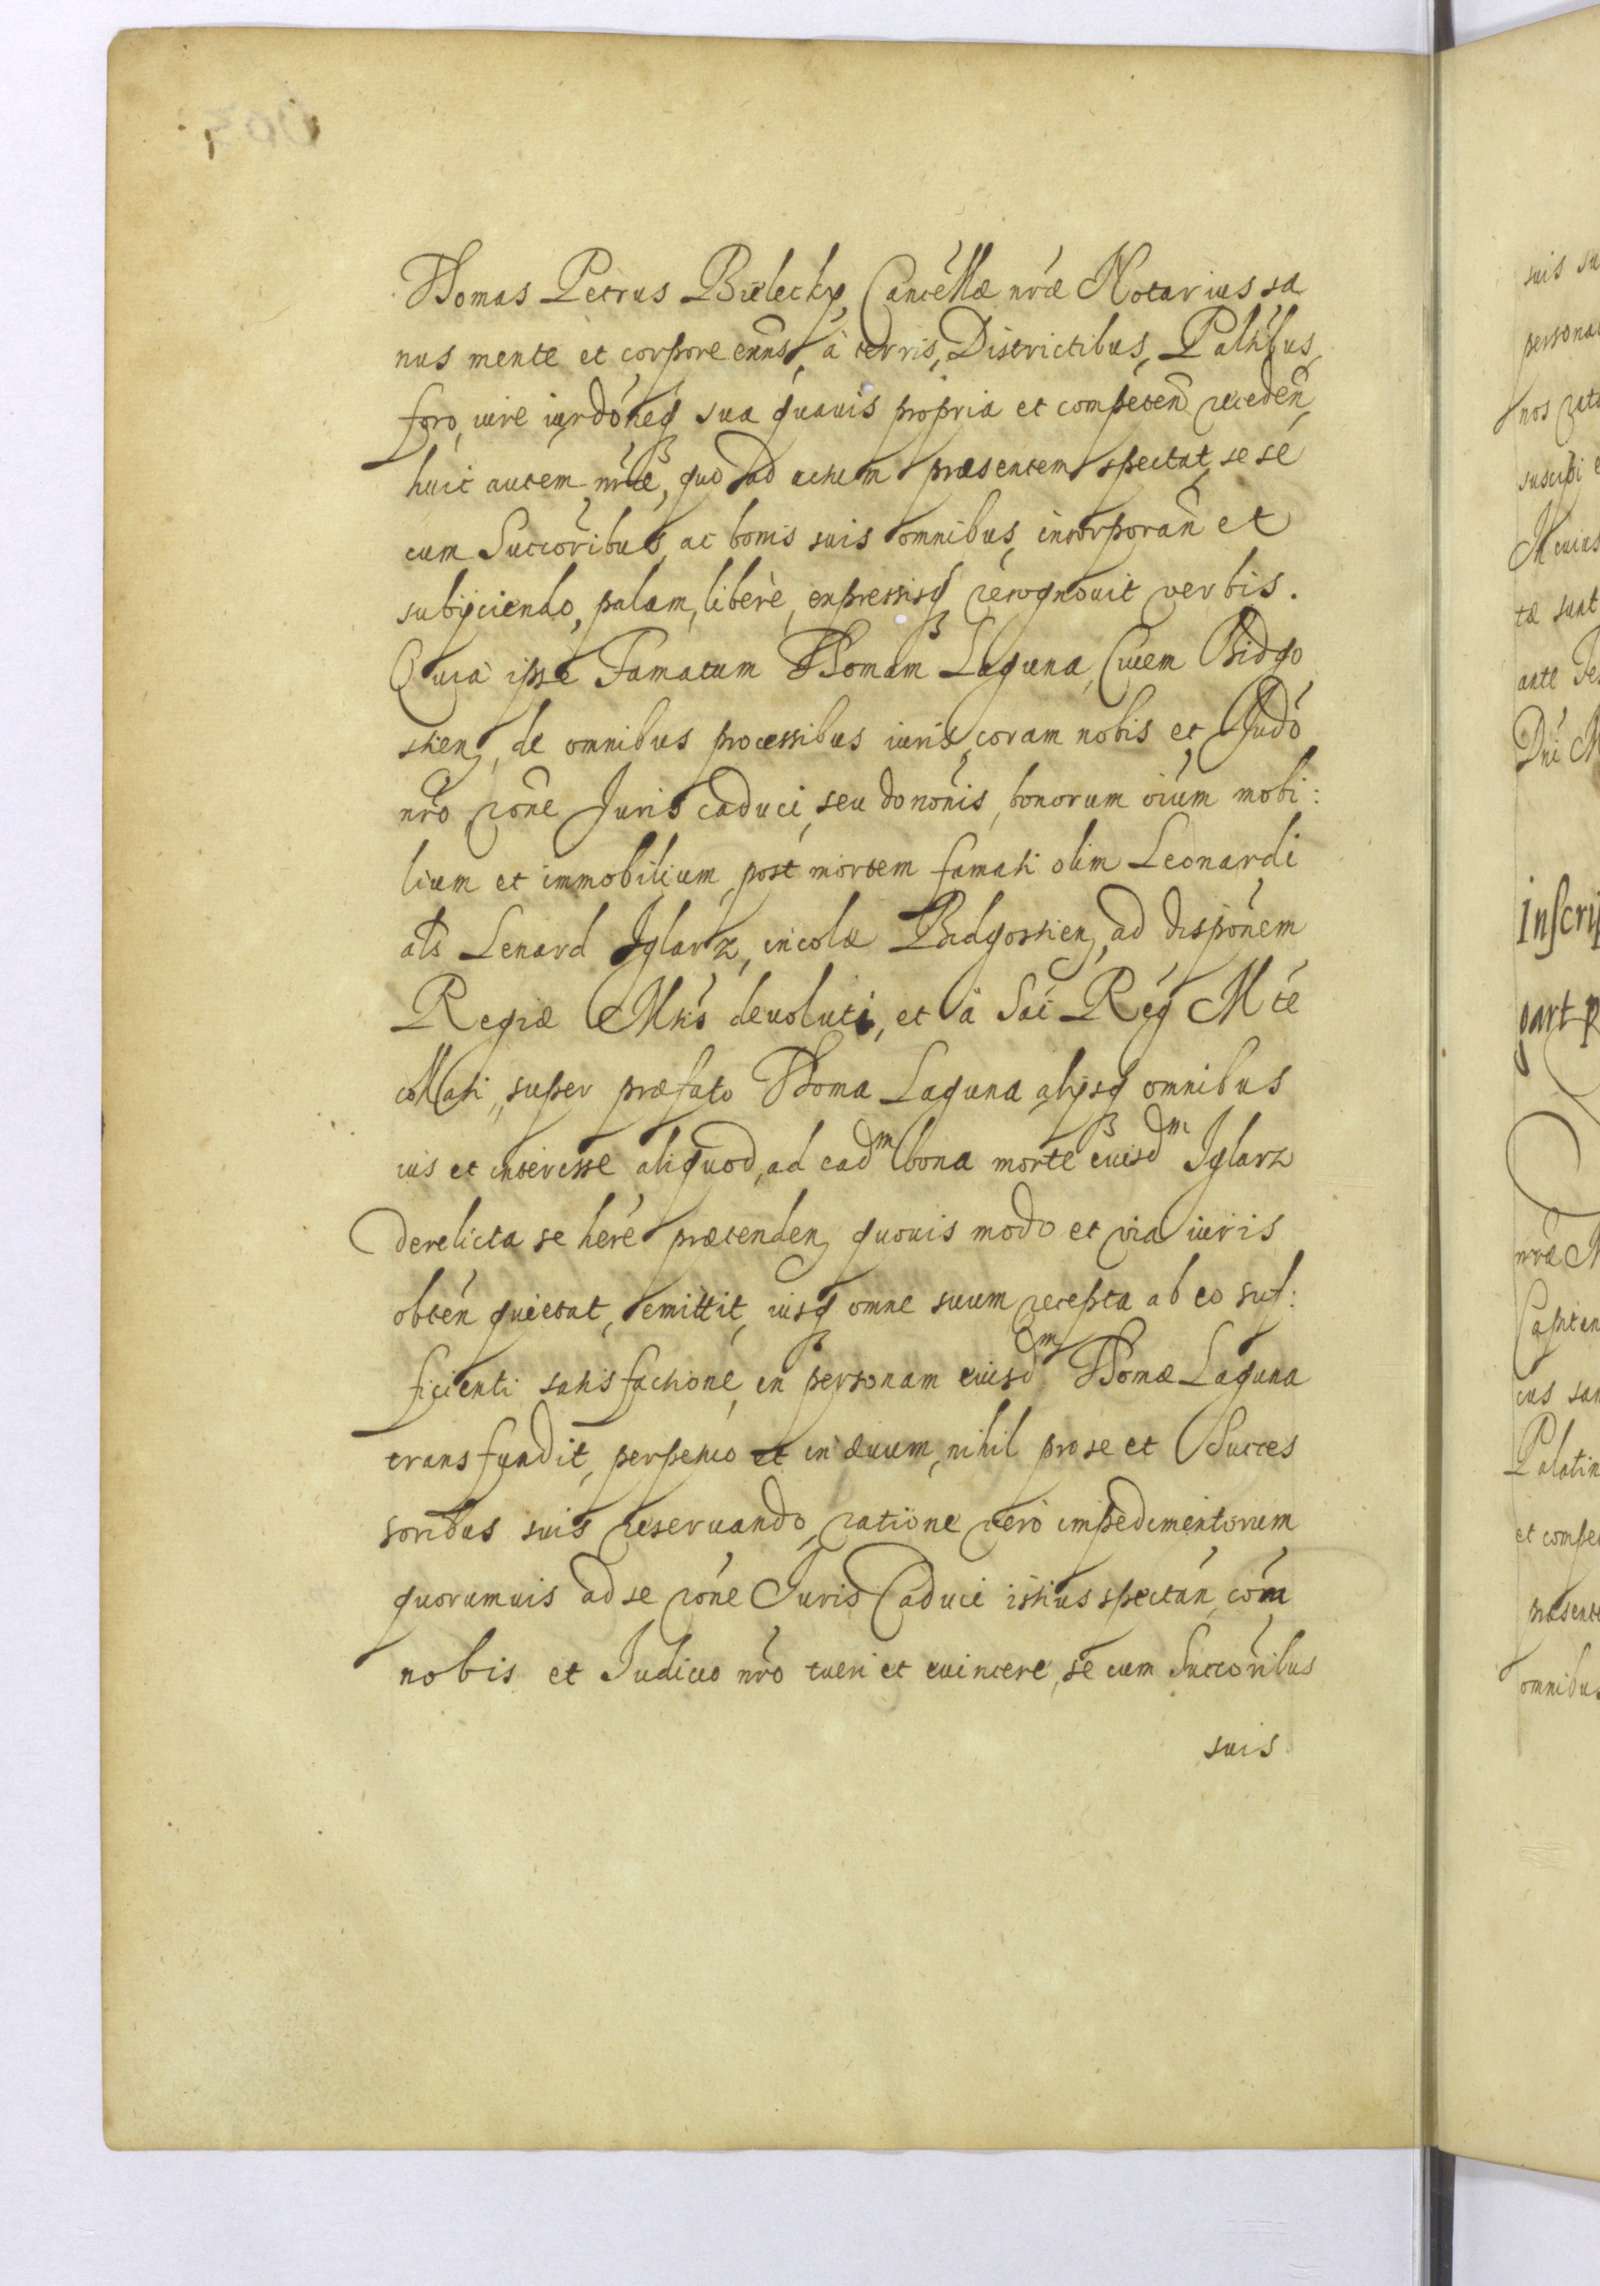 Thomas Petrus Bielecky, Cancellæ nræ Notarius sa
nus mente et corpore exns, à terris, Districtibus, Paltibus,
foro, iure iurdoneq sua quauis propria et competen receden
huic autem nræ, quo ad actum præsentem spectat, se se
cum Succoribus ac bonis suis omnibus incorporan et
subijciendo, palam, liberè, expressisq recognouit verbis.
Quia ipse Famatum Thomam Laguna, Ciuem Bidgo
stien, de omnibus processibus iuris, coram nobis et Judo
nro rone Juris caduci, seu dononis, bonorum oium mobi:
lium et immobilium post mortem famati olim Leonardi
als Lenard Jglarz, incolæ Bidgostien, ad disponem
Regiæ Mtis deuoluti, et à Sac Reg Mte
collati, super præfato Thoma Laguna alijsq omnibus
ius et interesse aliquod, ad eadm bona morte eiusdm Jglarz
derelicta se here prætenden quouis modo et via iuris
obten quietat, remittit, iusq omne suum recepta ab eo suf:
ficienti satisfactione, in personam eiusdm Thomæ Laguna
transfundit, perpetuo et in æuum, nihil pro se et Succes
soribus suis reseruando, ratione vero impedimentorum
quorumuis ad se rone Juris Caduci istius spectan, com
nobis et Judicio nro tueri et euincere, se cum Succoribus
suis